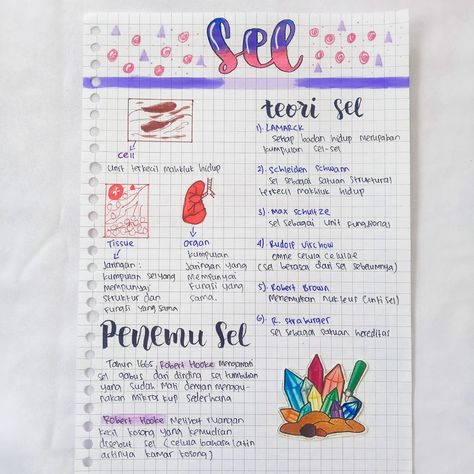 Sel
cell
Unit terkecil makhluk hidup
Tissue
Jaringan :
kumpulan sel yang
mempunyai
struktur dan
fungsi yang sama
organ
kumpulan
Jaringan yang
mempunyai
fungsi yang
sama.
teori sel
1). LAMARCK
setiap badan hidup merupakan
kumpulan sel-sel
2). Schleiden Schwann
sel sebagai satuan struktural
terkecil makhluk hidup
3). Max Schultze
sel sebagai unit fungsional
4). Rudolf Virchow
omne celula celulae
(sel berasal dari sel sebelumnya)
5). Robert Brown
Menemukan nukleus (inti sel)
6). R. Straburger
sel sebagai satuan hereditas
Penemu Sel
Tahun 1665 Robert Hooke mengamati
sel gabus dari dinding sel tumbuhan
yang sudah mati dengan menggu-
nakan mikroskup sederhana
Robert Hooke melihat ruangan
kecil kosong yang kemudian
disebut sel (celula bahasa latin
artinya kamar kosong)